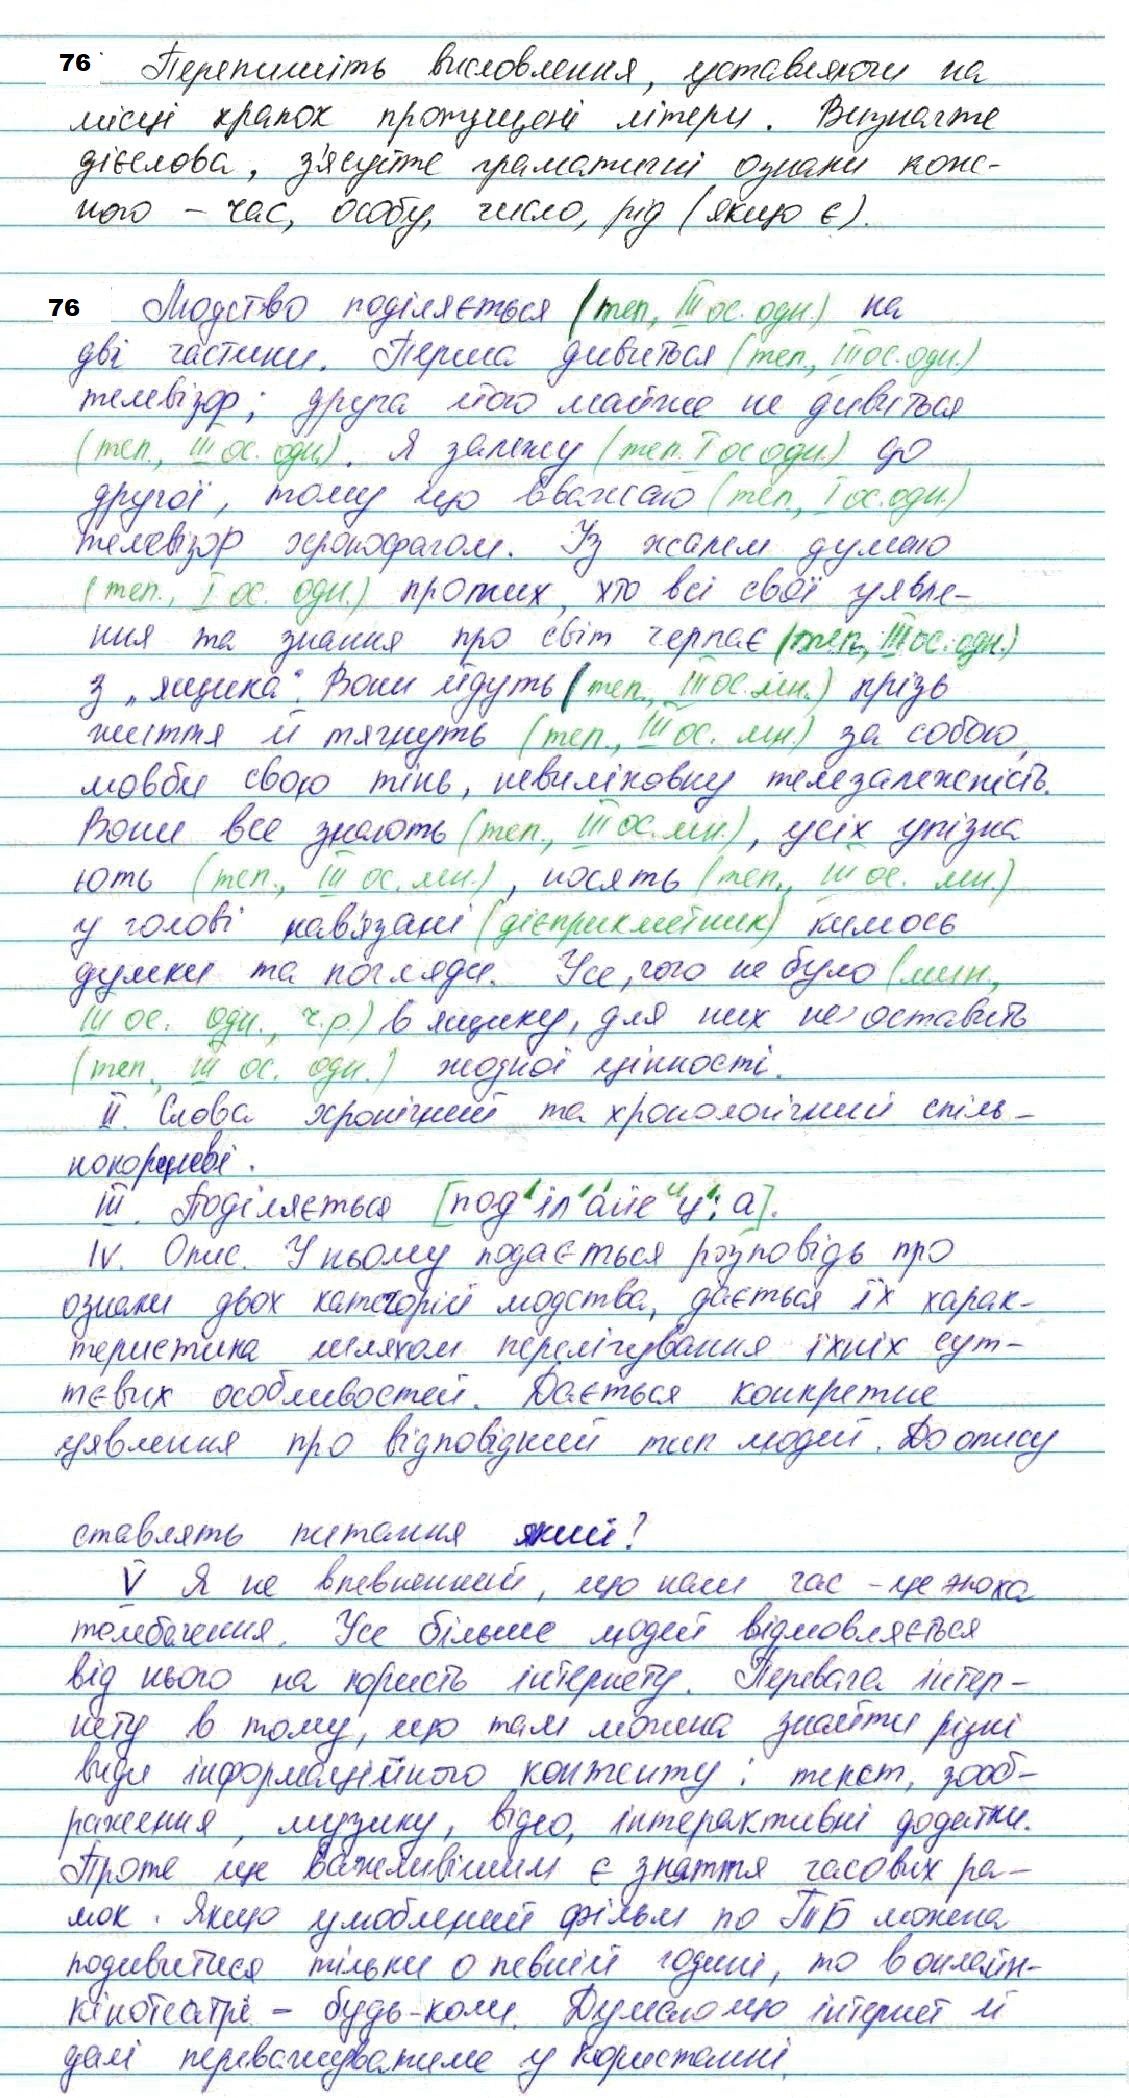 76 Перепишіть висловлення, уставляючи на
місці крапок пропущені літери. Визначте
дієслова, з'ясуйте граматичні ознаки кож-
ного – час, особу, число, рід (якщо є).
76 Людство поділяється (теп, III ос. одн.) на
дві частини. Перша дивиться (теп., III ос. одн.)
телевізор; друга його майже не дивиться
(теп., III ос. одн). Я залежу (теп. I ос одн.) до
другої, тому що вважаю (теп., I ос. одн.)
телевізор хронофагом. Із жалем думаю
(теп., I ос. одн.) про тих, хто всі свої уявле-
ння та знання про світ черпає (теп., III ос. одн.)
з „ящика". Вони йдуть (теп., III ос. мн.) крізь
життя й тягнуть (теп., III ос. мн.) за собою,
мовби свою тінь, невиліковну телезалежність.
Вони все знають (теп., III ос. мн.), усіх упізна
ють (теп., III ос. мн.), носять (теп., III ос. мн.)
у голові нав'язані (дієприкметник) кимось
думки та погляди. Усе, чого не було (мин.,
III ос. одн., ч.р.) в ящику, для них не оставить
(теп., III ос. одн.) жодної цінності.
II. Слова хронічний та хронологічний спіль-
нокореневі.
III. Поділяється [под'іл'айец':а].
IV. Опис. У ньому подається розповідь про
ознаки двох категорій людства, дається їх харак-
теристика шляхом перелічування їхніх сут-
тєвих особливостей. Дається конкретне
уявлення про відповідний тип людей. До опису
ставлять питання який?
V Я не впевнений, що наш час – це епоха
телебачення. Усе більше людей відмовляється
від нього на користь інтернету. Перевага інтер-
нету в тому, що там можна знайти різні
види інформаційного контенту: текст, зооб-
раження, музику, відео, інтерактивні додатки.
Проте ще важливішим є зняття часових ра-
мок. Якщо улюблений фільм по ТБ можна
подивитися тільки о певній годині, то в онлайн-
кінотеатрі – будь-коли. Думаю що інтернет й
далі переважуватиме у користанні.